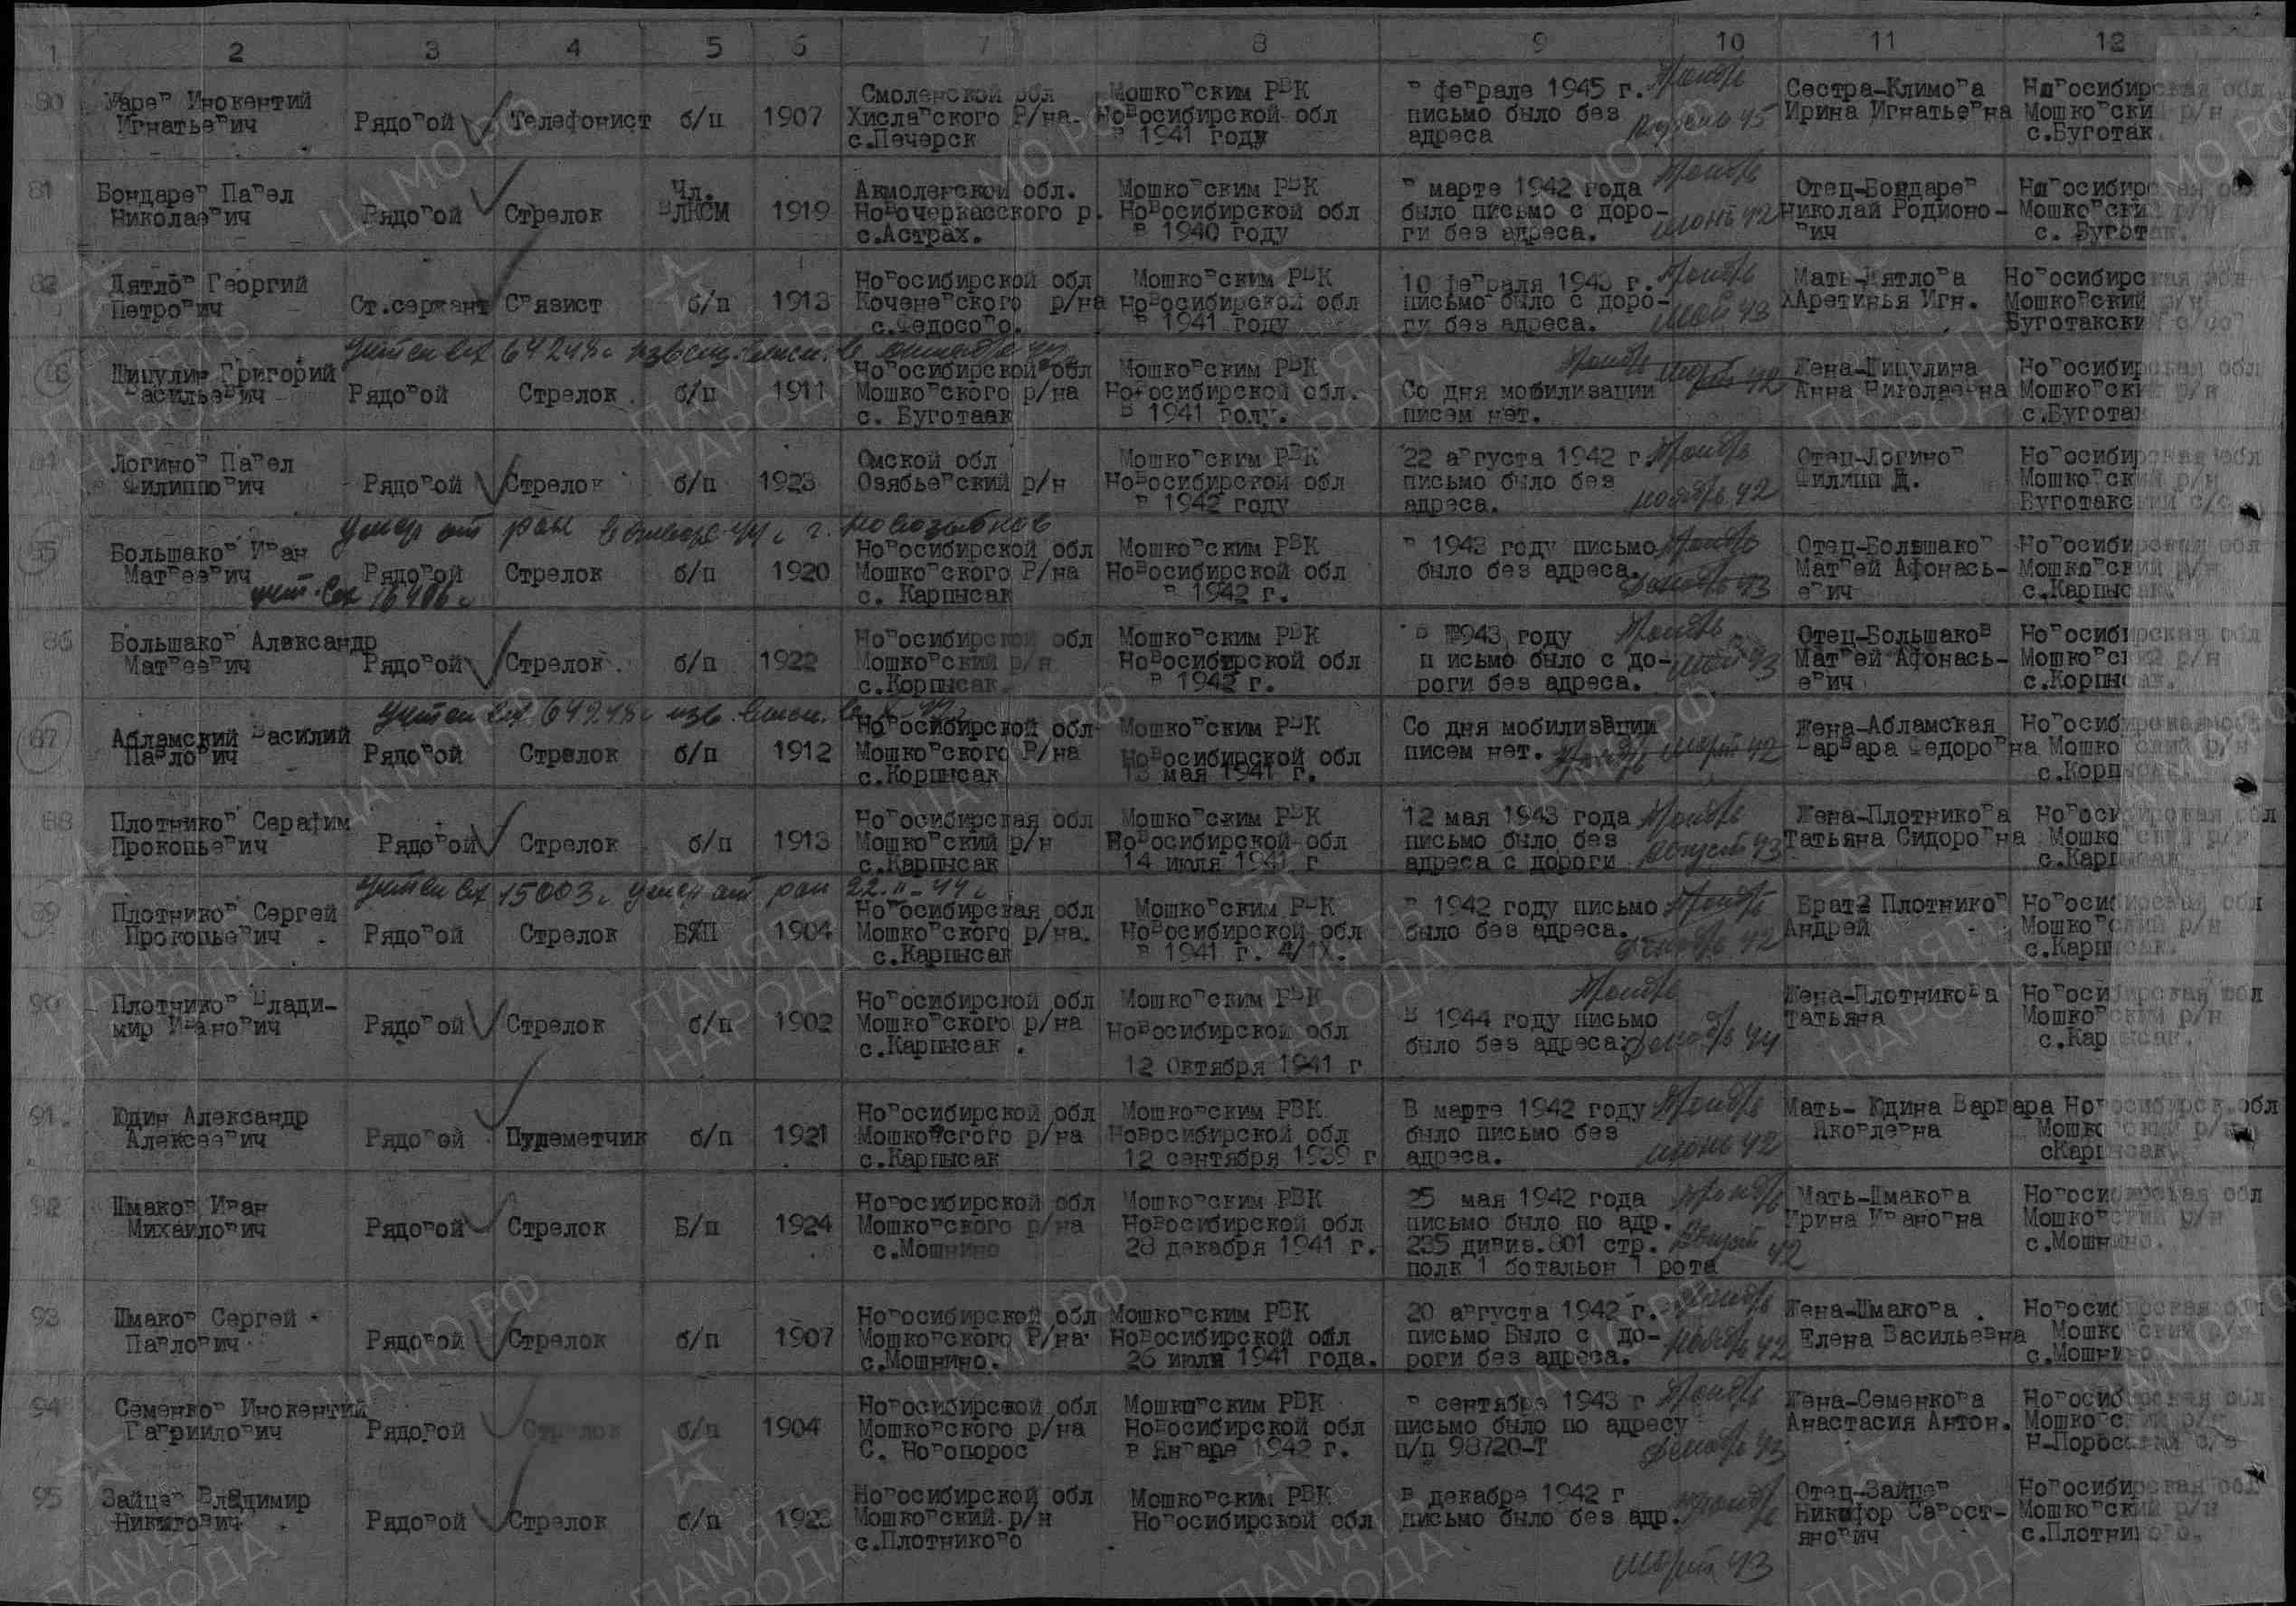 1 2 3 4 5 6 7 8 9 10 11 12
80 Уарев Инокентий Игнатьевич Рядовой Телефонист б/п 1907 Смоленской обл Хиславского Р/на с.Печерск Мошковским РВК Новосибирской обл в 1941 году в феврале 1945 г. письмо было без адреса 45 Сестра-Климова Ирина Игнатьевна Новосибирская обл Мошковски р/н с.Буготак.
81 Бондарев Павел Николаевич Рядовой Стрелок Чл. ВЛКСМ 1919 Акмоленской обл. Новочеркасского р. с.Астрах. Мошковским РВК Новосибирской обл в 1940 году в марте 1942 года было письмо с дороги без адреса. июнь 42 Отец-Бондарев Николай Родионович Новосибирская обл Мошковски р/н с. Буготак.
82 Дятлов Георгий Петрович Ст.сержант Связист б/п 1913 Новосибирской обл Коченевского р/на с.Федосово. Мошковским РВК Новосибирской обл в 1941 году 10 февраля 1943 г. письмо было с дороги без адреса. май 43 Мать-Дятлова Аретинья Игн. Новосибирская обл Мошковский р/н Буготакский с/сов
83 Шицулин Григорий Васильевич Рядовой Стрелок б/п 1911 Новосибирской обл Мошковского р/на с. Буготаак Мошковским РВК Новосибирской обл. в 1941 году. Со дня мобилизации писем нет. март 42 Жена-Шицулина Анна Николаевна Новосибирская обл Мошковски р/н с.Буготак
учтен вх 64248с
84 Логинов Павел Филиппович Рядовой Стрелок б/п 1923 Омской обл Озябьевский р/н Мошковским РВК Новосибирской обл в 1942 году 22 августа 1942 г. письмо было без адреса. ноябрь 42 Отец-Логинов Филипп Д. Новосибирская обл Мошковский р/н Буготакский с/с
умер от ран в январе 44 г. г. Новозыбков
85 Большаков Иван Матвеевич Рядовой Стрелок б/п 1920 Новосибирской обл Мошковского Р/на с. Карпысак Мошковским РВК Новосибирской обл в 1942 г. в 1943 году письмо было без адреса. декабрь 43 Отец-Большаков Матвей Афонасьевич Новосибирская обл Мошковский р/н с.Карпысак.
учт. вх 16406с
86 Большаков Александр Матвеевич Рядовой Стрелок. б/п 1922 Новосибирской обл Мошковский р/н с.Корпысак. Мошковским РВК Новосибирской обл в 1942 г. В 1943 году п исьмо было с дороги без адреса. май 43 Отец-Большаков Матвей Афонасьевич Новосибирская обл Мошковский р/н с.Корпысак.
учтен вх 64248с
87 Абламский Василий Павлович Рядовой Стрелок б/п 1912 Новосибирской обл Мошковского Р/на с.Корпысак Мошковским РВК Новосибирской обл 13 мая 1941 г. Со дня мобилизации писем нет. март 42 Жена-Абламская Варвара Федоровна Новосибирская обл Мошковский р/н с.Корпысак.
88 Плотников Серафим Прокопьевич Рядовой Стрелок б/п 1913 Новосибирская обл Мошковский р/н с.Карпысак Мошковским РВК Новосибирской обл 14 июля 1941 г 12 мая 1943 года письмо было без адреса с дороги август 43 Жена-Плотникова Татьяна Сидоровна Новосибирская обл Мошковский р/н с.Карпысак
учтен вх 15003с умер от ран 22.II-44 г
89 Плотников Сергей Прокопьевич Рядовой Стрелок Б/П 1904 Новосибирская обл Мошковского р/на. с.Карпысак Мошковским РВК Новосибирской обл в 1941 г. 4/IX. в 1942 году письмо было без адреса. декабрь 42 Брат Плотников Андрей Новосибирская обл Мошковский р/н с.Карпысак.
90 Плотников Владимир Иванович Рядовой Стрелок б/п 1902 Новосибирской обл Мошковского р/на с.Карпысак. Мошковским РВК Новосибирской обл 12 Октября 1941 г В 1944 году письмо было без адреса. декабрь 44 Жена-Плотникова Татьяна Новосибирская обл Мошковский р/н с.Карпысак.
91. Юдин Александр Алексеевич Рядовой Пулеметчик б/п 1921 Новосибирской обл Мошковсгого р/на с.Карпысак Мошковским РВК Новосибирской обл 12 сентября 1939 г В марте 1942 году было письмо без адреса. июнь 42 Мать- Юдина Варвара Яковлевна Новосибирск.обл Мошковский р/н сКарпысак.
92 Шмаков Иван Михаилович Рядовой Стрелок Б/п 1924 Новосибирской обл Мошковского р/на с.Мошнино Мошковским РВК Новосибирской обл 28 декабря 1941 г. 25 мая 1942 года письмо было по адр. 235 дивиз.801 стр. полк 1 ботальон 1 рота август 42 Мать-Шмакова Ирина Ивановна Новосибирская обл Мошковский р/н с.Мошнино.
93 Шмаков Сергей Павлович Рядовой Стрелок б/п 1907 Новосибирской обл Мошковского Р/на с.Мошнино. Мошковским РВК Новосибирской обл 26 июля 1941 года. 20 августа 1942 г. письмо Было с дороги без адреса. ноябрь 42 Жена-Шмакова Елена Васильевна Новосибирская обл Мошковский р/н с.Мошнино
94 Семенков Инокентий Гавриилович Рядовой Стрелок б/п 1904 Новосибирской обл Мошковского р/на С. Новопорос Мошковским РВК Новосибирской обл в Январе 1942 г. в сентябре 1943 г письмо было по адресу п/п 98720-Т декабрь 43 Жена-Семенкова Анастасия Антон. Новосибирская обл Мошковский р/н Н-Поросский с/с
95 Зайцев Владимир Никифович Рядовой Стрелок б/п 1923 Новосибирской обл Мошковский р/н с.Плотниково Мошковским РВК Новосибирской обл в декабре 1942 г письмо было без адр. март 43 Отец-Зайцев Никифор Савостянович Новосибирская обл Мошковский р/н с.Плотниково.
ЦА МО РФ
ПАМЯТЬ НАРОДА